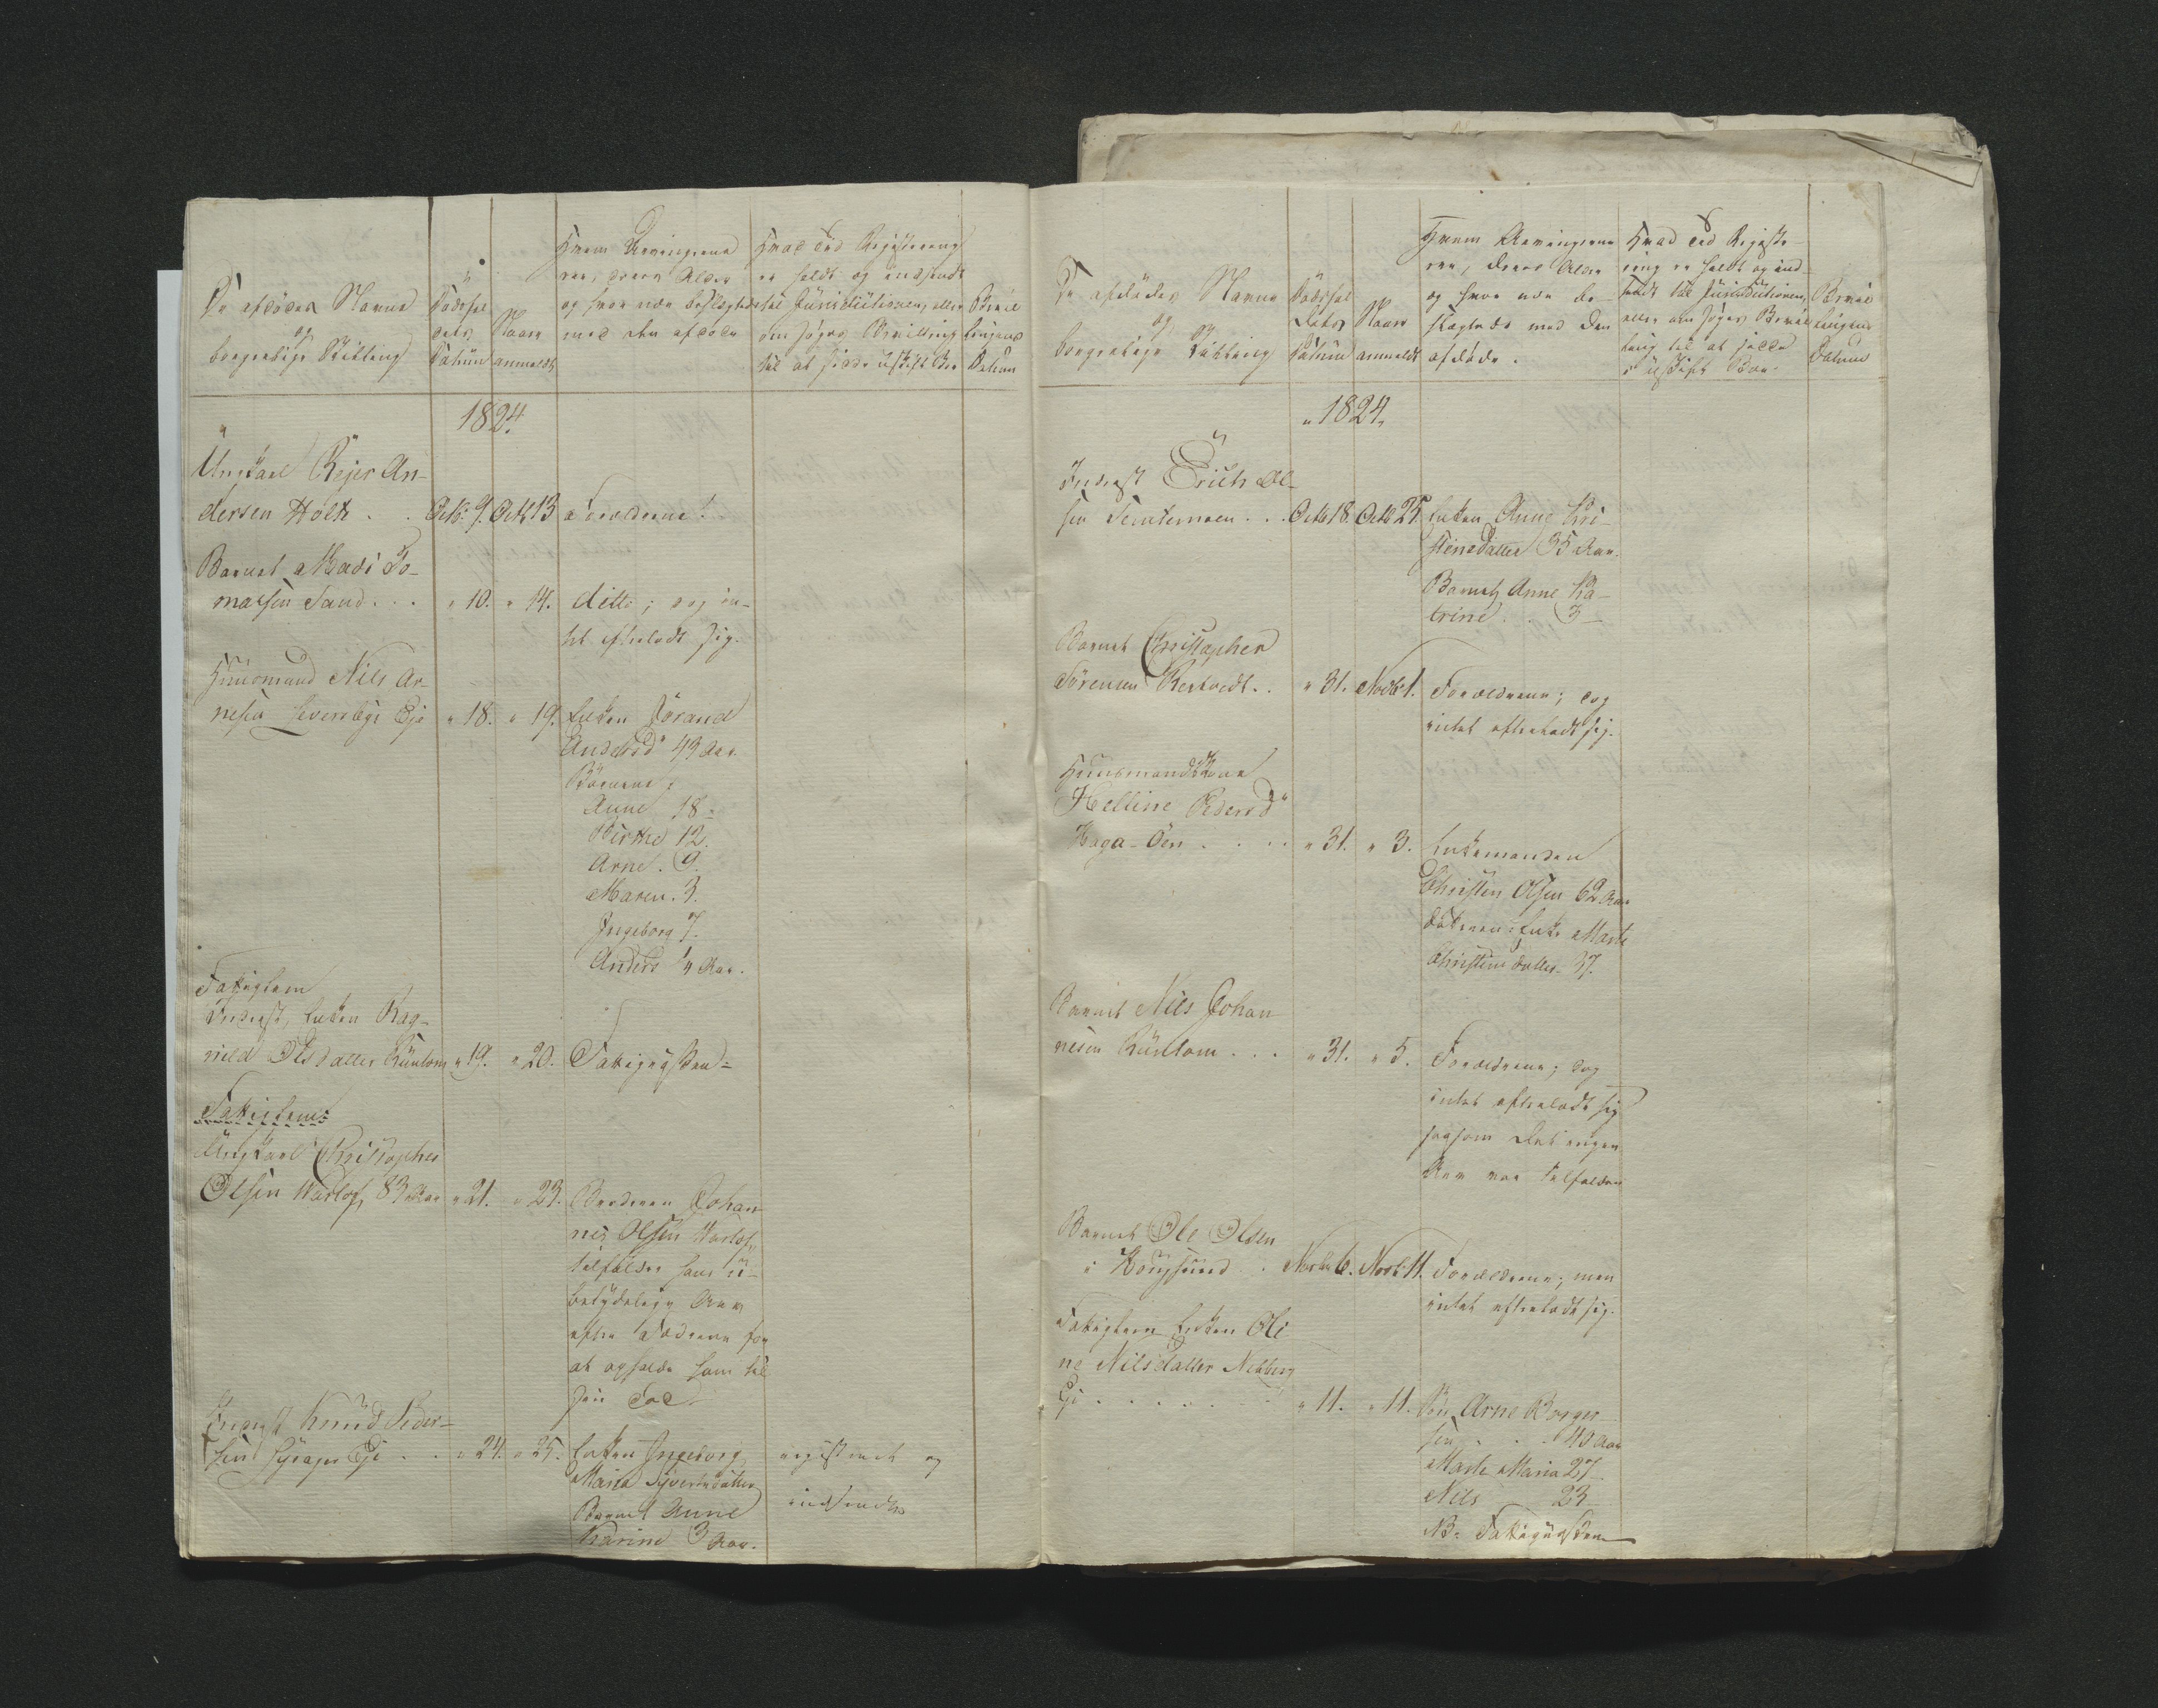 De afdödes Navne
og
borgerlige Stilling
Dødsfal
dets
Datum
Naar
anmeldt
Hvem Arvingerne
ere, deres Alder
og hvor nær beslægtede
med den afdøde
Hvad ved Registrering
er holdt og indsendt
til Jurisdictionen, eller
om søges Bevilling
til at sidde i uskift Boe
Bevil
lingens
Datum
1824.
Ungkarl Rejer An-
dersen Holte . . Octb: 9. Octb 13 Forældrene.
Barnet Mads To-
masen Sand . . . " 10. " 14. ditto; dog in-
tet efterladt sig.
Huusmand Nils Ar-
nesen Eje " 18. " 19. Enken Jörand
Andersd 43 Aar.
Börnene:
Anne 18-
Birthe 12.
Arne . 9.
Maren . 3.
Ingeborg 7.
Anders ¼ Aar.
Fattiglem
Inderst, Enken Rag-
nild Olsdatter Runtom " 19. " 20. Fattigkassen
Fattiglem:
Ungkarl Christopher
Olsen Warlo, 83 Aar " 21. " 23. Broderen Johan-
nes Olsen Warlo,
tilfalder hans u-
betydelige Arv
efter for
at opholde ham til
sin Død.
Inderst Knud Peder-
sen Eje . . " 24. " 25. Enken Ingeborg
Maria Syversdatter
Barnet Anne
Karine 3 Aar.
registreret og
indsendt
De afdödes Navne
og
borgerlige Stilling
Dødsfal
dets
Datum
Naar
anmeldt
Hvem Arvingerne
ere, deres Alder
og hvor nær be-
slægtede med den
afdøde.
Hvad ved Registre-
ring er holdt og ind-
sendt til Jurisdictionen,
eller om søges Bevil-
ling til at sidde
i uskift Boe.
Bevil
lingens
Datum
" 1824.
Inderst Erich Ol-
sen . . . Octb 18. Octb 25. Enken Anne Kri-
stensdatter 35 Aar.
Barnet Anne Ka-
trine . . 3 -
Barnet Christopher
Sörensen . . " 31. Novbr 1. Forældrene; dog
intet efterladt sig.
Huusmandskone
Helline Pedersd
Haga-Öen . . . . " 31. " 3. Enkemanden
Christen Olsen 62 Aar
Datteren: Enke Marte
Christensdatter 37.
Barnet Nils Johan-
nesen Runtom . . . " 31. " 5. Forældrene; dog
intet efterladt sig
saasom det ingen
Arv var tilfalden
Barnet Ole Olsen
i Hougsund . . Novbr 6. Novb: 11. Forældrene; men
intet efterladt sig.
Fattiglem Enken Oli-
ne Nilsdatter
Eje . . . . . . " 11. " 11. Sön Arne Borger-
sen . . . 40 Aar
Marte Maria 27 -
Nils 23 -
NB: Fattigkassen